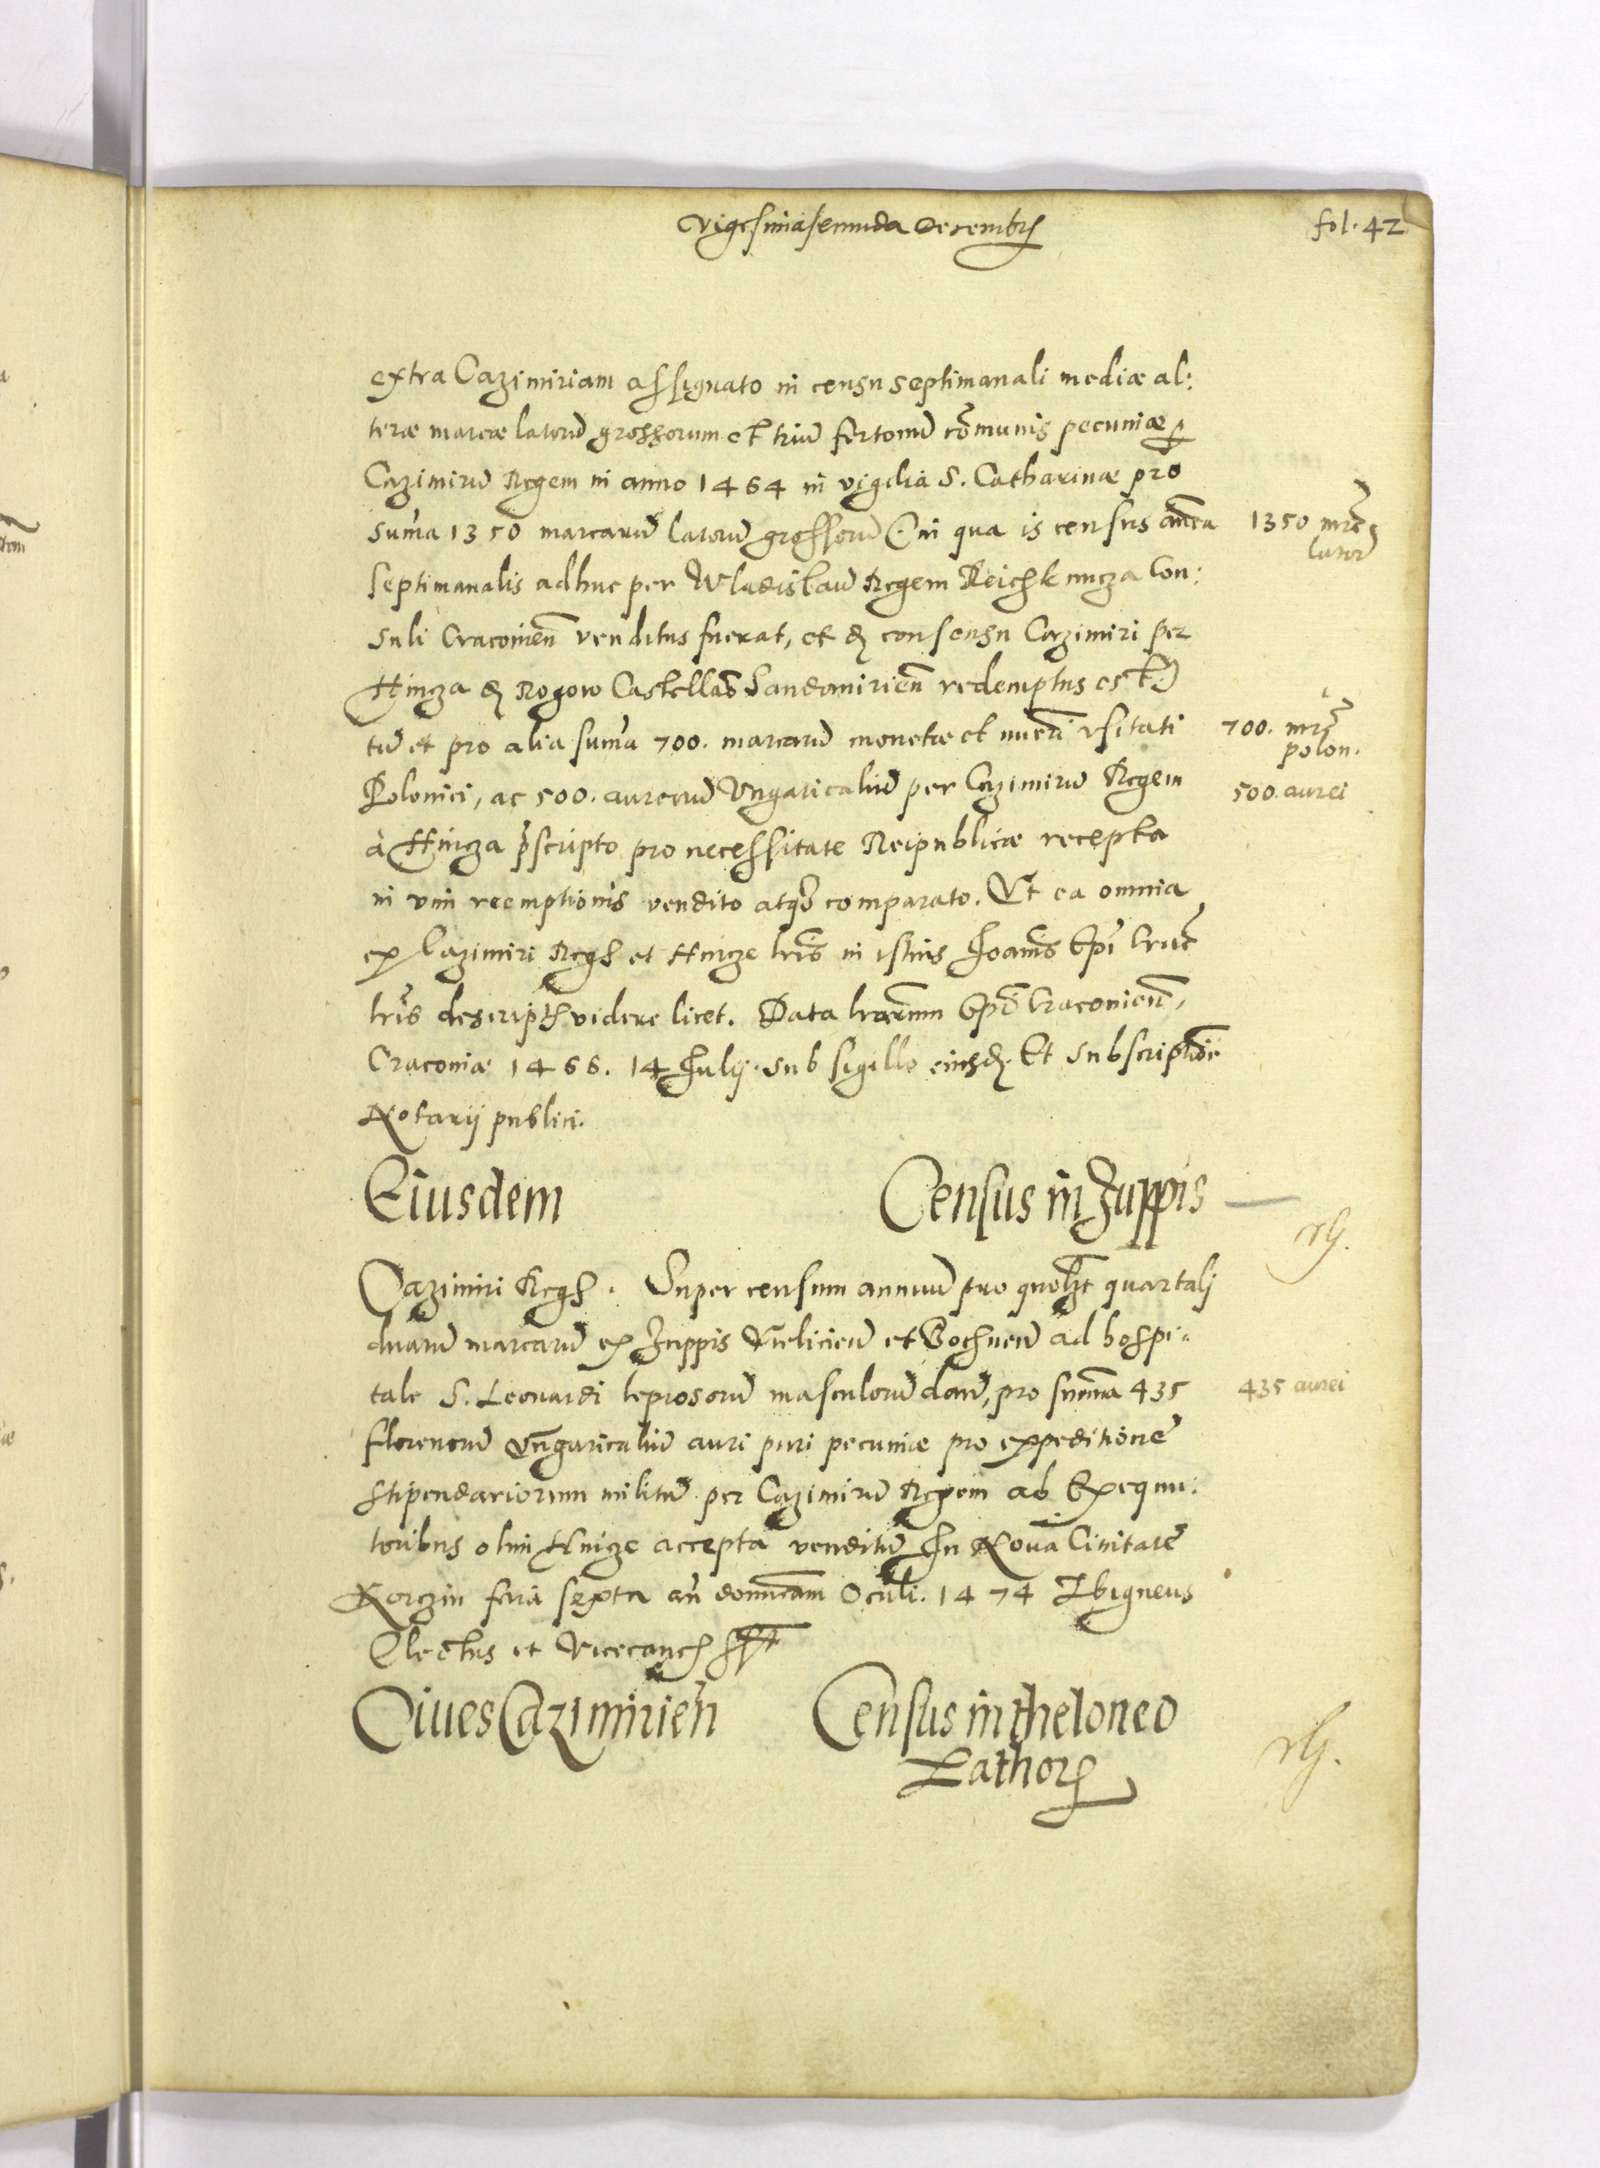 Vigesimasecunda Decembris
fol. 42
extra Cazimiriam assignato in censu septimanali mediæ al:
teræ marcæ latorũ grossorum et triũ fertonũ cõmunis pecuniæ
Cazimirũ Regem in anno 1464 in vigilia S. Catharinæ pro
suma 1350 marcarũ latorũ grossorũ (: in qua is census antea
1350 mrc
lator
septimanalis adhuc per Wladislaũ Regem Reichkincza Con:
suli Cracovien̄ venditus fuerat, et de consensu Cazimiri per
Hincza de Rogow Castellanõ Sandomirien̄ redemptus est :)
tũ et pro alia suma 700. marcarũ monetæ et nuĩ vsitati
700. mrc
polon.
Polonici, ac 500. aureorũ Vngaricaliũ per Cazimirũ Regem
500. aurei
à Hincza p̄scripto pro necessitate Reipublicæ recepta
in vim reemptionis vendito atq̃ comparato. Et ea omnia
ex Cazimiri Regis et Hincze lris in istius Joannis Epi Crac̄
lris descriptis videre licet. Data lrarum Epi Cracovien̄,
Cracoviæ 1466. 14 Julij. sub sigillo eiusd. Et subscriptiõe
Notarij publici.
Eiusdem Census in Zuppis
Cazimiri Regis. Super censum annuũ pro quolꝫt quartali
duarũ marcarũ ex Zuppis Vielicien̄ et Bochnen̄ ad hospi=
tale S. Leonardi leprosorũ masculorũ dan̄, pro summa 435
435 aurei
florenorũ Vngaricaliũ auri puri pecuniæ pro expeditionẽ
stipendariorum militũ per Cazimirũ Regem ab Exequu:
toribus olim Hincze accepta venditũ In Noua Ciuitatẽ
Korczin feria sexta an̄ domĩcam Oculi. 1474 Zbigneus
Electus et Vicecanc̃ sst
Ciues Cazimirien̄ Census in theloneo
Lathor